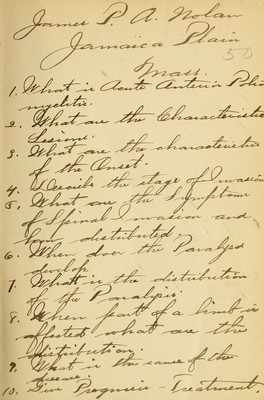 James P. A. Nolan
Jamaica Plain
50
Mass.
1. What is Acute Anterior Polio
myelitis.
2. What are the Characteristic
Lesions.
3. What are the characteristics
of the Onset.
4. Describe the stage of Invasion
5. What are the Symptoms
of Spinal Invasion and
how distributed.
6. When does the Paralysis
develop.
7. What is the distribution
of the Paralysis.
8. When part of a limb is
affected what are the
distribution.
9. What is the cause of the
disease.
10. Give Prognosis - Treatment.